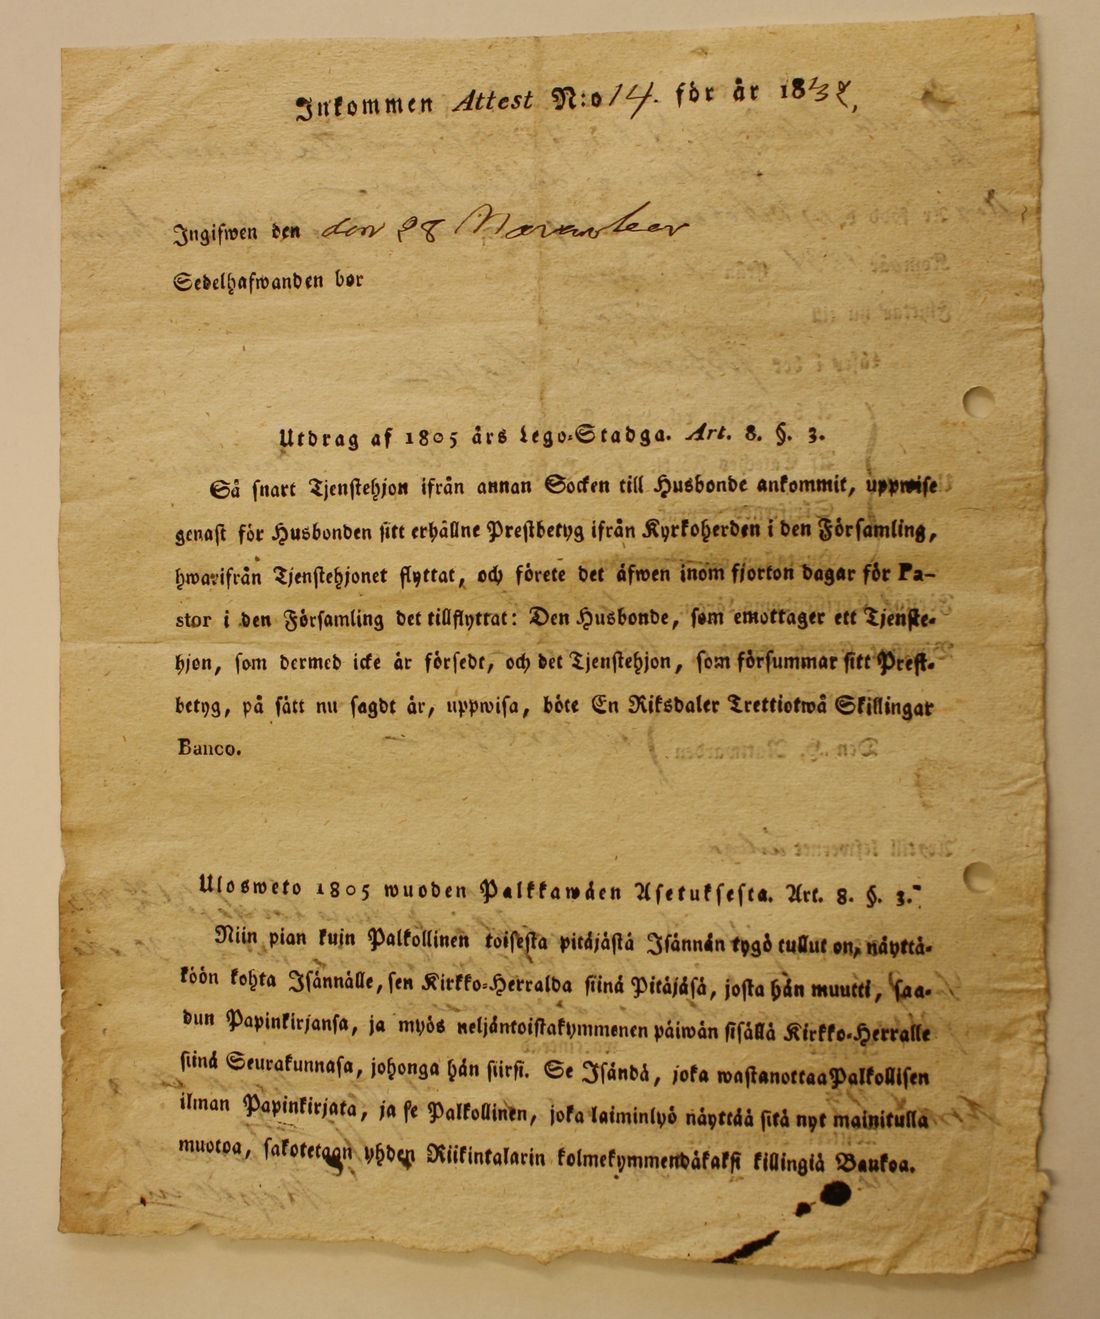 Inkommen Attest N:o 14. för år 1832,
Ingifwen den den 28 November
Sedelhafwanden bor
Utdrag af 1805 års Lego-Stadga. Art. 8. §. 3.
Så snart Tjenstehjon ifrån annan Socken till Husbonde ankommit, uppwise
genast för Husbonden sitt erhållne Prestbetyg ifrån Kyrkoherden i den Församling,
hwarifrån Tjenstehjonet flyttat, och förete det äfwen inom fjorton dagar för Pa-
stor i den Församling det tillflyttat: Den Husbonde, som emottager ett Tjenste-
hjon, som dermed icke är försedt, och det Tjenstehjon, som försummar sitt Prest-
betyg, på sätt nu sagdt är, uppwisa, böte En Riksdaler Trettiotwå Skillingar
Banco.
Ulosweto 1805 wuoden Palkkawäen Asetuksesta. Art. 8. §. 3.
Niin pian kuin Palkollinen toisesta pitäjästä Isännän tygö tullut on, näyttä-
köön kohta Isännälle, sen Kirkko-Herralda siinä Pitäjäsä, josta hän muutti, saa-
dun Papinkirjansa, ja myös neljäntoistakymmenen päiwän sisällä Kirkko-Herralle
siinä Seurakunnasa, johonga hän siirsi. Se Isändä, joka wastanottaa Palkollisen
ilman Papinkirjata, ja se Palkollinen, joka laiminlyö näyttää sitä nyt mainitulla
muotoa, sakotetaan yhden Riikintalarin kolmekymmendäkaksi killingiä Bankoa.